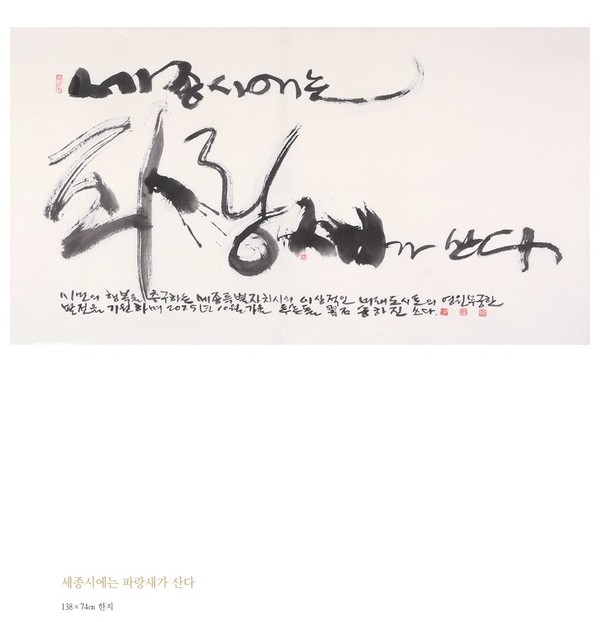 세종시에는
파랑새가 산다
시민의 행복을 추구하는 세종특별자치시의 이상적인 미래도시로의 영원무궁한
발전을 기원하며 2025년 10월 가을 송하진 쓰다.
세종시에는 파랑새가 산다
138×74㎝ 한지